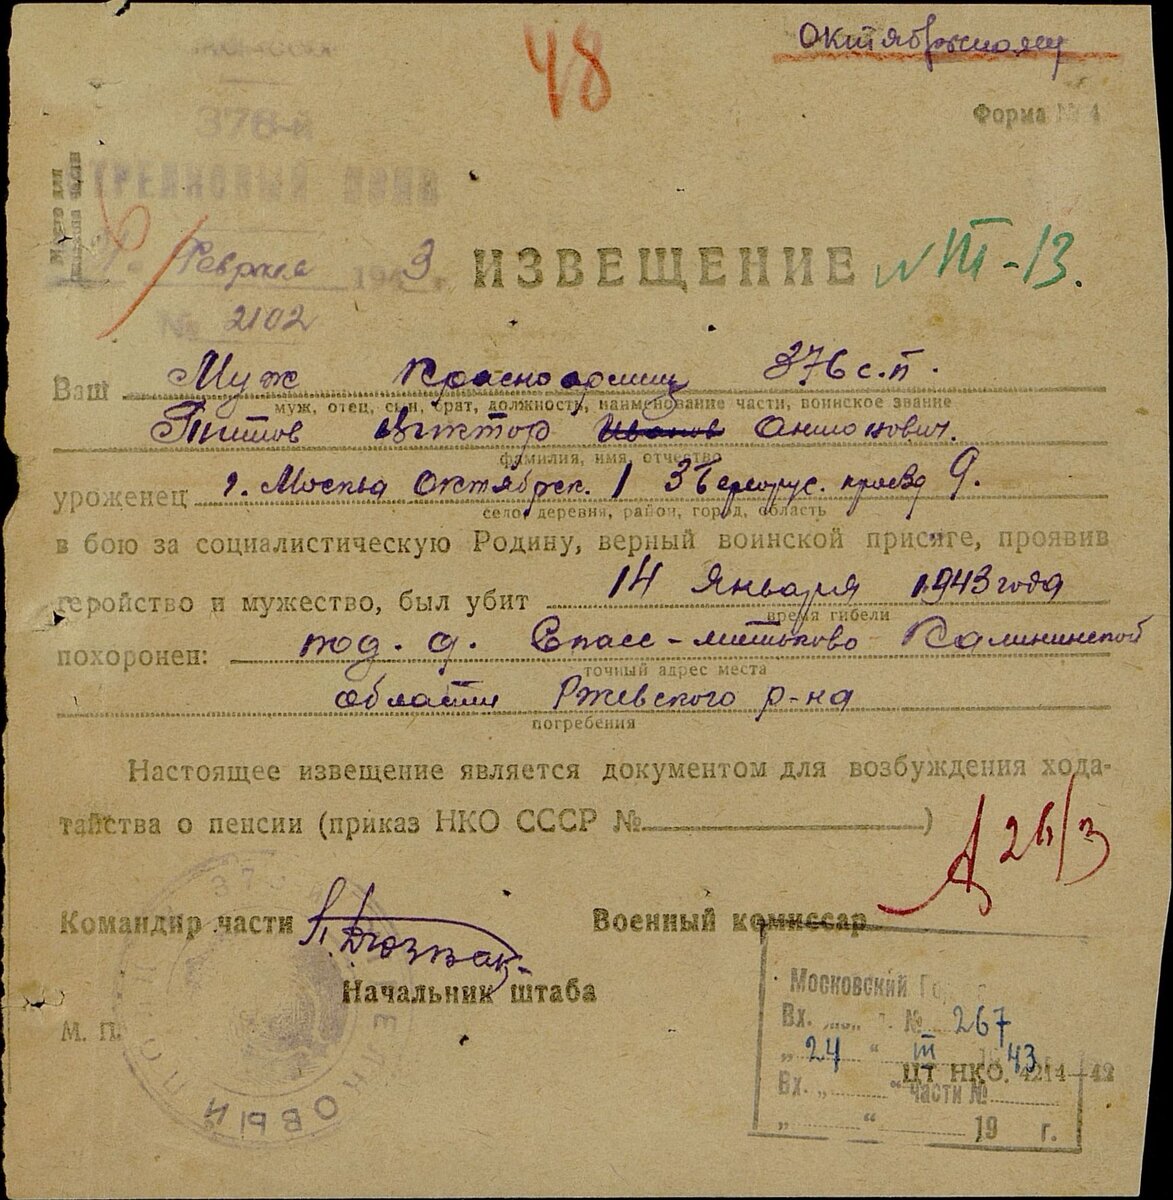 Октябрьскому
48
Форма № 4
376-й
СТРЕЛКОВЫЙ ПОЛК
Февраля 1943 г.
№ 2102
ИЗВЕЩЕНИЕ
NIII-13.
Ваш Муж Красноармеец 376 с.п.
муж, отец, сын, брат, должность, наименование части, воинское звание
Титов Виктор Антонович.
фамилия, имя, отчество
уроженец г. Москва Октябрск. 1 проезд 9.
село, деревня, район, город, область
в бою за социалистическую Родину, верный воинской присяге, проявив
геройство и мужество, был убит 14 Января 1943 года
время гибели
похоронен: под. д. Спасс-митьково Калининской
точный адрес места
области Ржевского р-на
погребения
Настоящее извещение является документом для возбуждения хода-
тайства о пенсии (приказ НКО СССР № )
26/3
Командир части
Военный комиссар
Начальник штаба
М. П.
Московский
Вх. № 267
„ 24 “ III 1943
ЦТ НКО. 4214—42
Вх. „ “ части №
„ “ 19 г.